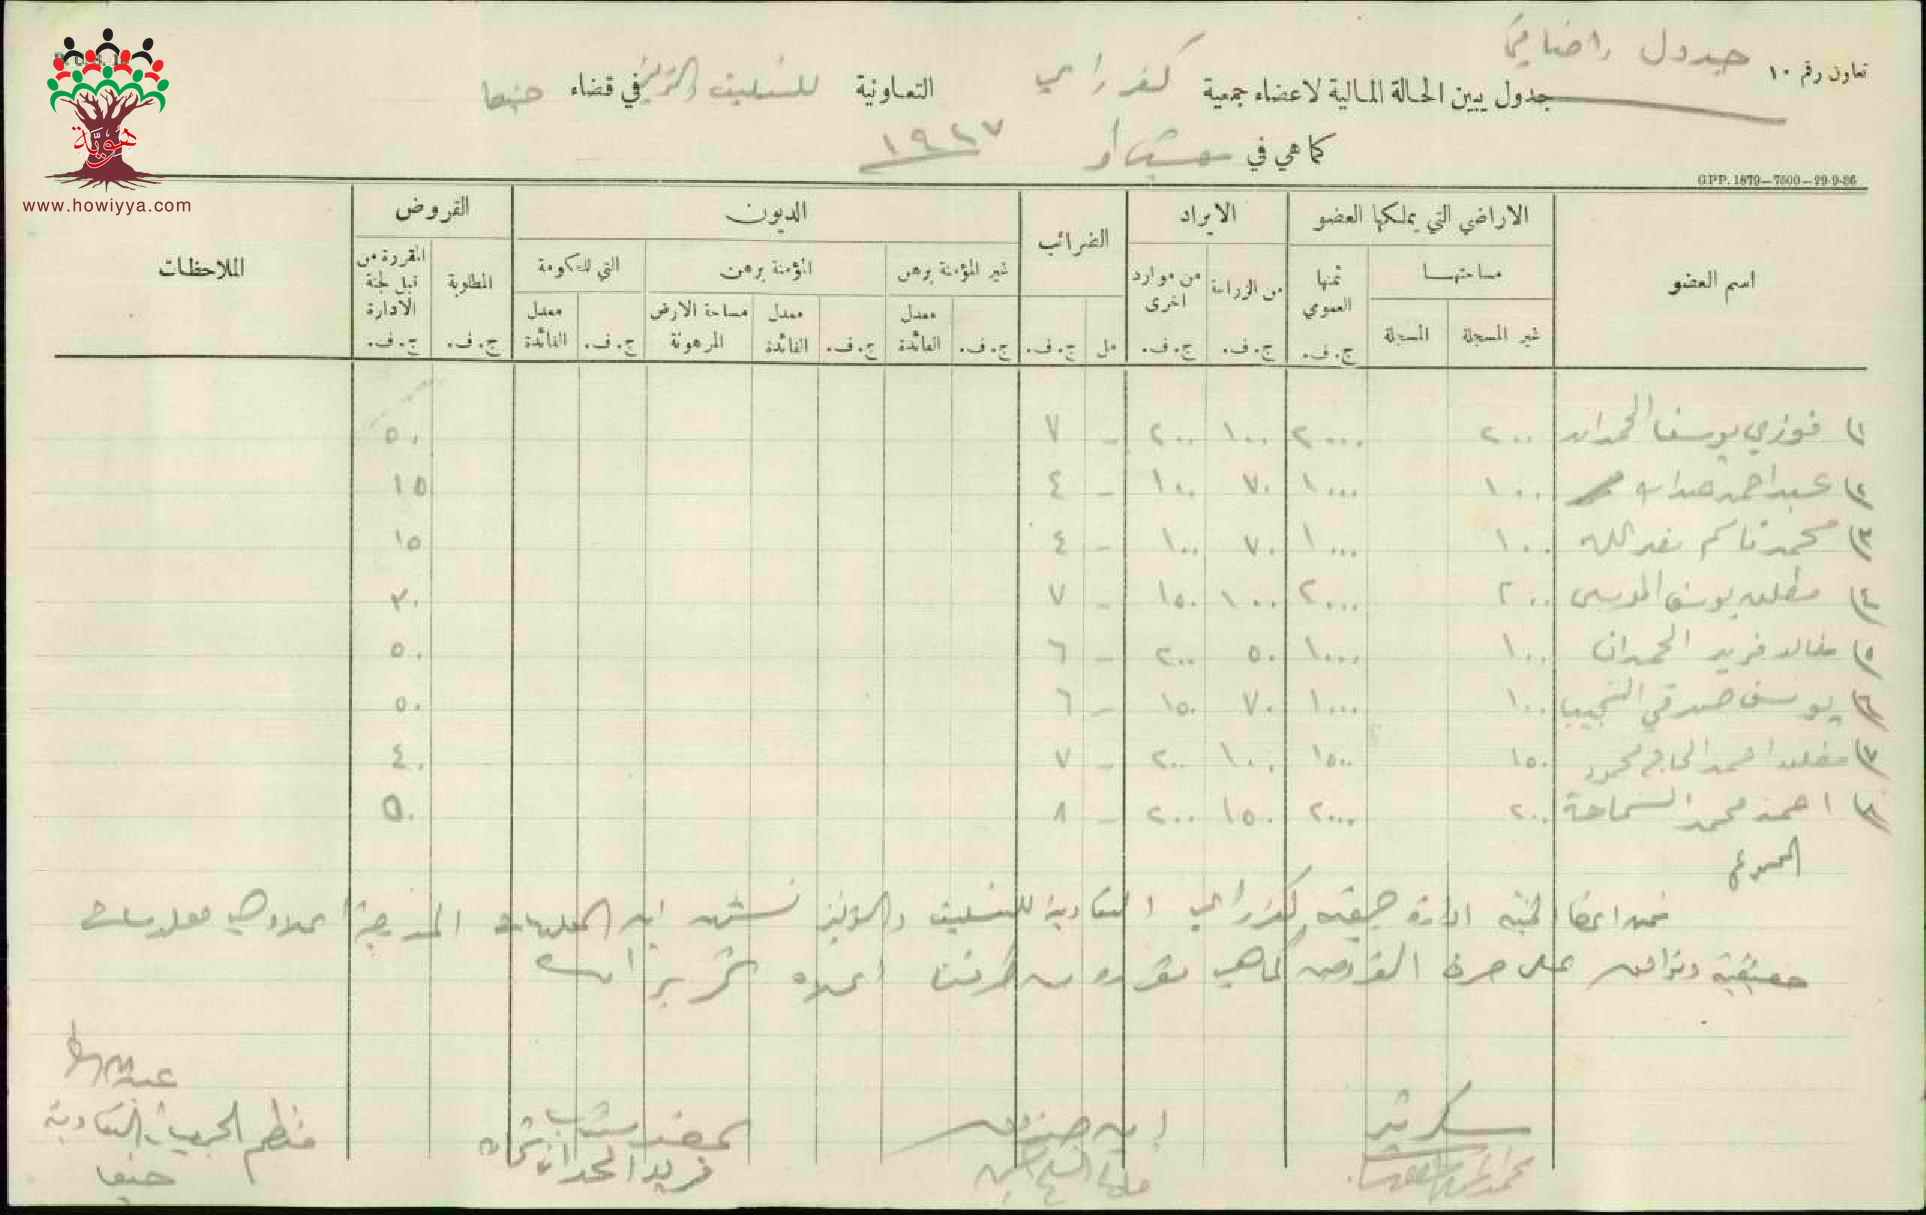 تعاون رقم ١٠
جدول اضافي
جدول يبين الحالة المالية لاعضاء جمعية كفر راعي التعاونية للتسليف والتوفير في قضاء جنين
كما هي في
GPP. 1879—7500—29-9-36
هوية
www.howiyya.com
اسم العضو
الاراضي التي يملكها العضو
مساحتها
غير المسجلة
المسجلة
ثمنها العمومي
ج. ف.
الايراد
من الزراعة
ج. ف.
من موارد اخرى
ج. ف.
الضرائب
مل
ج. ف.
الديون
غير المؤمنة برهن
ج. ف.
معدل الفائدة
المؤمنة برهن
ج. ف.
معدل الفائدة
مساحة الارض المرهونة
التي للحكومة
ج. ف.
معدل الفائدة
القروض
المطلوبة
ج. ف.
المقررة من قبل لجنة الادارة
ج. ف.
الملاحظات
١) فوزي يوسف الحمدان ٢٠٠ ٢٠٠٠ ١٠٠ ٢٠٠ – ٧ ٥٠
٢) ١٠٠ ١٠٠٠ ٧٠ ١٠٠ – ٤ ١٥
٣) محمد قاسم ١٠٠ ١٠٠٠ ٧٠ ١٠٠ – ٤ ١٥
٤) يوسف ٢٠٠ ٢٠٠٠ ١٠٠ ١٥٠ – ٧ ٣٠
٥) خالد فريد الحمدان ١٠٠ ١٠٠٠ ٥٠ ٢٠٠ – ٦ ٥٠
٦) يوسف صدقي النجيب ١٠٠ ١٠٠٠ ٧٠ ١٥٠ – ٦ ٥٠
٧) احمد الحاج محمود ١٥٠ ١٥٠٠ ١٠٠ ٢٠٠ – ٧ ٤٠
٨) احمد محمد ٢٠٠ ٢٠٠٠ ١٥٠ ٢٠٠ – ٨ ٥٠
المجموع
نحن اعضاء لجنة ادارة جمعية كفر راعي التعاونية للتسليف والتوفير نشهد ان المعلومات المدرجة اعلاه هي معلومات
حقيقية ونوافق على صرف القروض كما هي مقررة من طرفنا اعلاه
سكرتير
امين صندوق
فريد الحمدان
منظم الجمعيات التعاونية
جنين